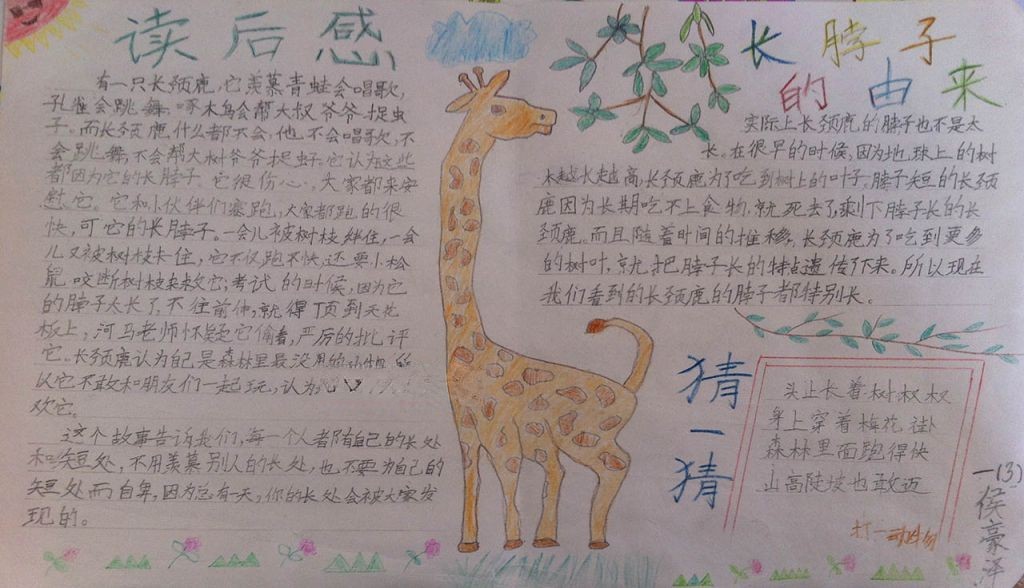 读后感
有一只长颈鹿,它羡慕青蛙会唱歌,
孔雀会跳舞,啄木鸟会帮大叔爷爷捉虫
子。而长颈鹿什么都不会,他不会唱歌,不
会跳舞,不会帮大树爷爷捉虫子。它认为这些
都因为它的长脖子。它很伤心,大家都来安
慰它。它和小伙伴们赛跑,大家都跑的很
快,可它的长脖子。一会儿被树枝绊住,一会
儿又被树枝卡住,它不仅跑不快,还要小松
鼠咬断树枝来救它;考试的时候,因为它
的脖子太长了,不往前伸,就得顶到天花
板上,河马老师怀疑它偷看,严厉的批评
它。长颈鹿认为自己是森林里最没用的
以它不敢和朋友们一起玩,认为
欢它。
这个故事告诉我们,每一个人都有自己的长处
和短处,不用羡慕别人的长处,也不要为自己的
短处而自卑,因为总有一天,你的长处会被大家发
现的。
长脖子
的由来
实际上长颈鹿的脖子也不是太
长。在很早的时候,因为地球上的树
木越长越高,长颈鹿为了吃到树上的叶子,脖子短的长颈
鹿因为长期吃不上食物,就死去了,剩下脖子长的长
颈鹿。而且随着时间的推移,长颈鹿为了吃到更多
的树叶,就把脖子长的特点遗传了下来。所以现在
我们看到的长颈鹿的脖子都特别长。
猜一猜
头上长着树杈杈
身上穿着梅花褂
森林里面跑得快
山高陡坡也敢迈
打一动物
一(3)
侯豪泽